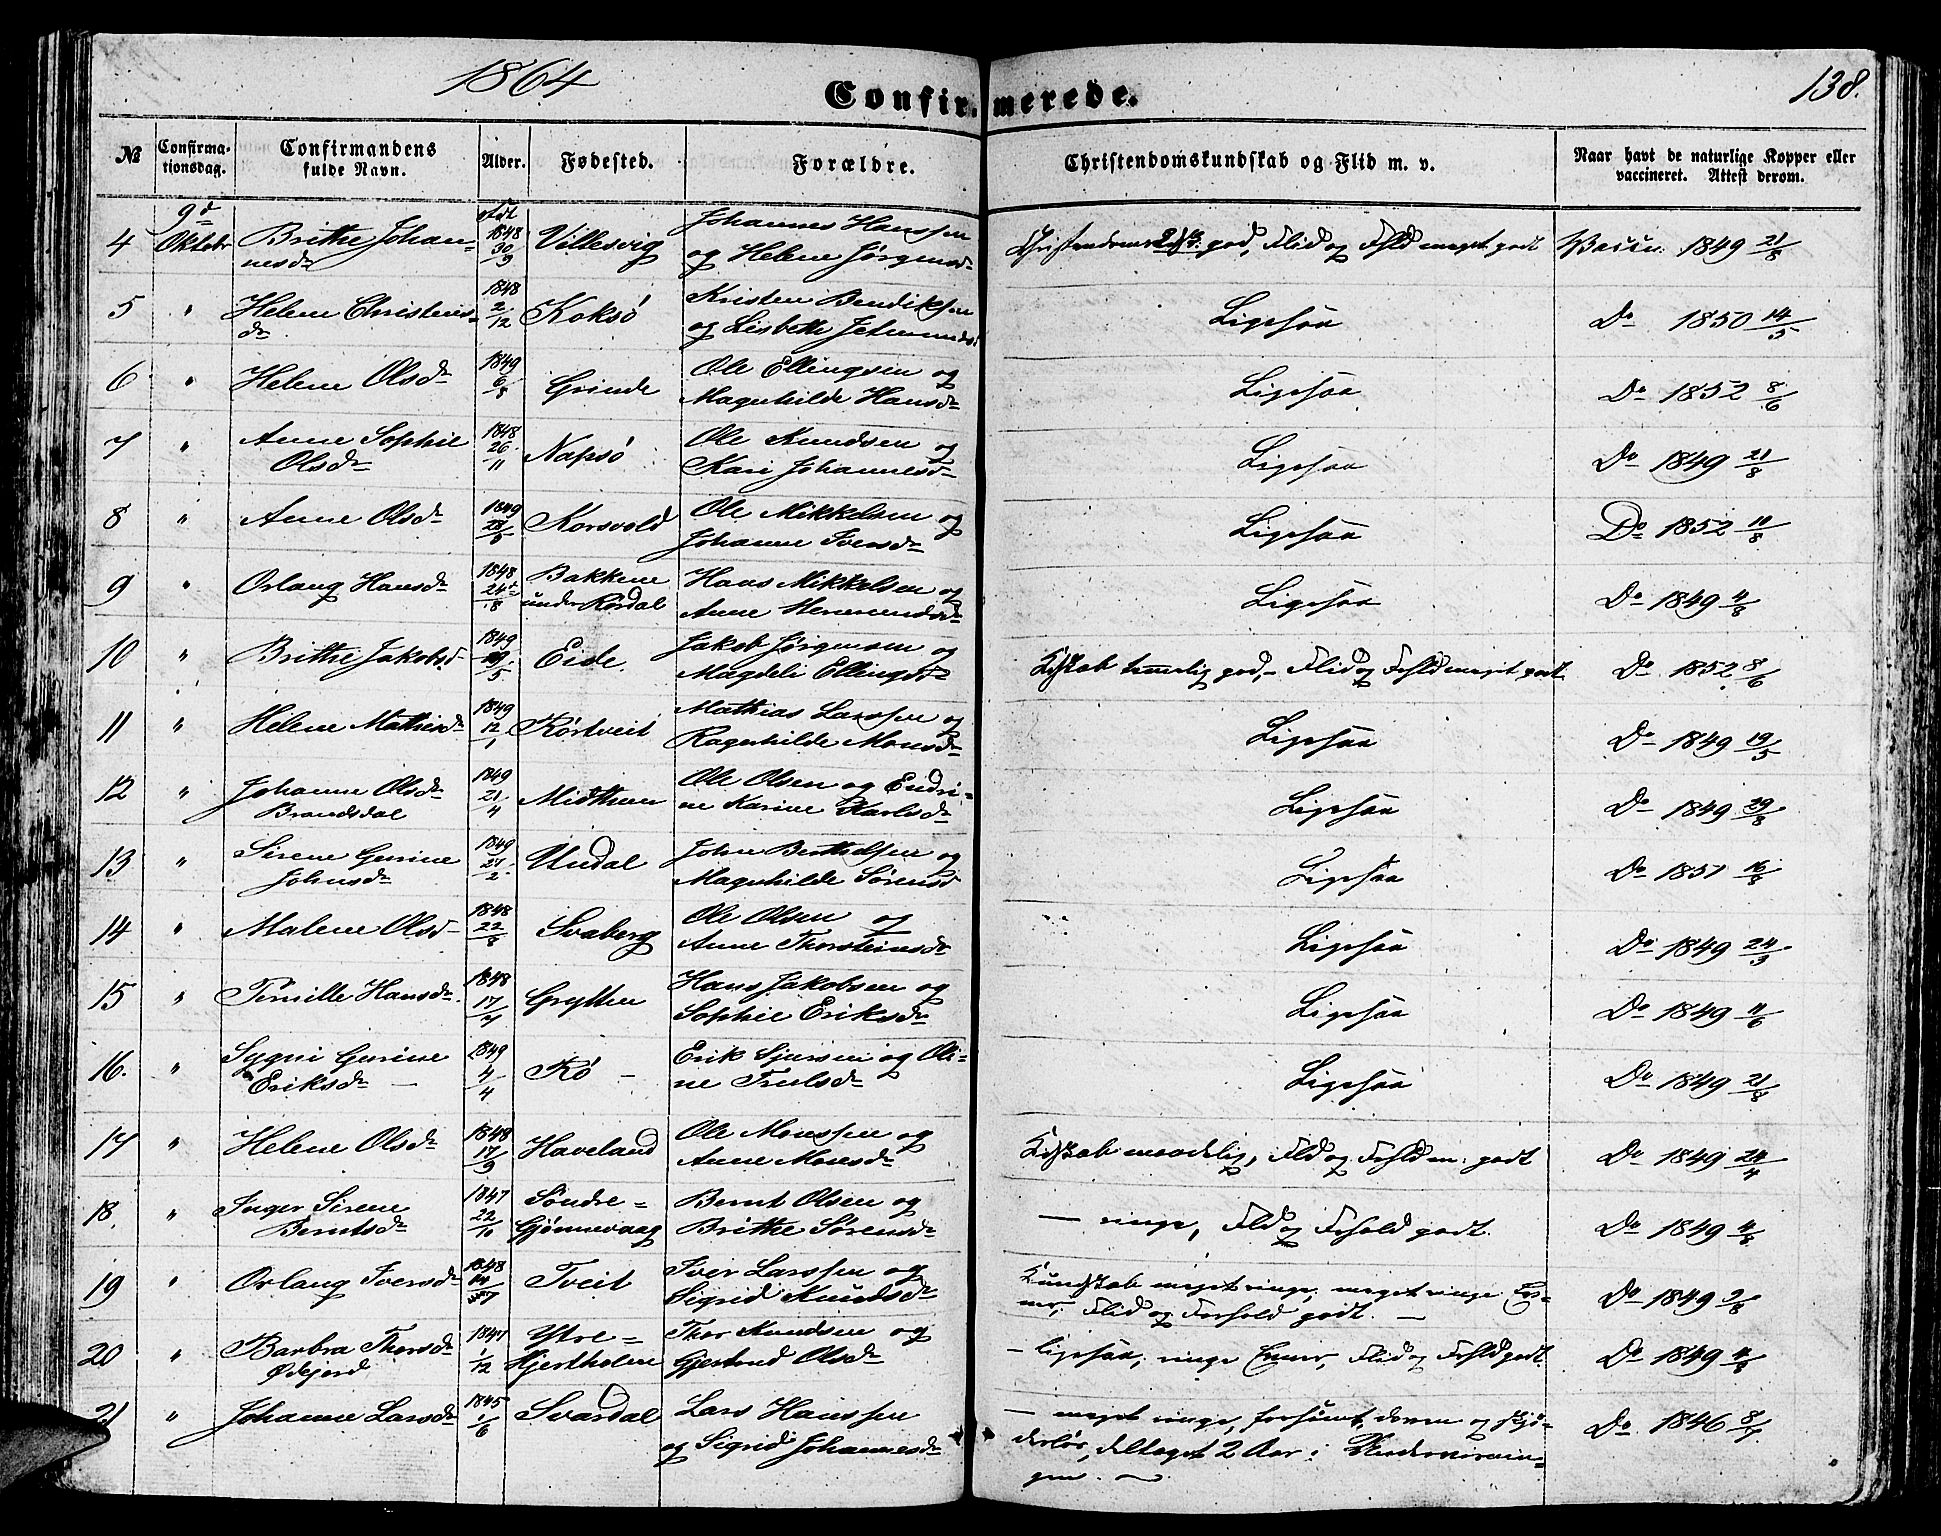 1864
Confirmerede.
138.
№ Confirmationsdag. Confirmandens fulde Navn. Alder. Fødested. Forældre. Christendomskundskab og Flid m. v. Naar havt de naturlige Kopper eller vaccineret. Attest derom.
4 9d Oktobr Brithe Johannesdr født 1848 30/9 Villesvig Johannes Hanssen og Helene Jørgensdr god, Flid og Fhld meget godt Vaccin. 1849 21/8
5 " Helene Christensdr 1848 2/12 Koksö Kristen Bendiksen og Lisbeth Ligesaa Do 1850 14/5
6 " Helene Olsdr 1849 6/8 Grinde Ole Ellingsen og Magnhilde Hansdr Ligesaa Do 1852 8/6
7 " Anne Sophie Olsdr 1848 26/11 Napsö Ole Knudsen og Kari Johannesdr Ligesaa Do 1849 21/8
8 " Anne Olsdr 1849 28/5 Korsvold Ole Mikkelsen og Johanne Iversdr Ligesaa Do 1852 11/8
9 " Orlaug Hansdr 1848 24/8 Bakkene under Rørdal Hans Mikkelsen og Anne Ligesaa Do 1849 4/8
10 " Brithe Jakobsd 1849 19/5 Eide Jakob Jørgensen og Magdeli Ellingsdr Kskab temmelig god, – Flid og Fhld meget godt Do 1852 8/6
11 " Helene Mathisdr 1849 12/1 Rörtveit Mathias Larssen og Ragnhilde Monsdr Ligesaa Do 1849 19/5
12 " Johanne Olsdr Brandsdal 1849 21/4 Midttun Ole Olsen og Endrine Karine Karlsdr Ligesaa Do 1849 29/8
13 " Sirene Gurine Johnsdr 1849 21/2 Undal John Berthelsen og Magnhilde Sørensd Ligesaa Do 1851 16/8
14 " Malene Olsd 1848 22/8 Svaberg Ole Olsen og Anne Thorsteinsdr Ligesaa Do 1849 24/9
15 " Pernille Hansdr 1848 17/7 Grytten Hans Jakobsen og Sophie Eriksdr Ligesaa Do 1849 11/6
16. " Sygni Gurine Eriksdr – 1849 4/4 Rö – Erik Sjursen og Oline Trulsdr Ligesaa Do 1849 21/8
17 " Helene Olsdr 1848 17/9 Haveland Ole Monssen og Anne Monsdr Kskab maadelig, Flid og Fhld m. godt Do 1849 24/4
18. " Inger Sirene Berntsdr 1847 22/10 Söndre Gjønnevaag Bernt Olsen og Brithe Sørensdr — ringe, Flid og Forhold godt. Do 1849 4/8
19 " Orlaug Iversdr 1848 Tveit Iver Larssen og Sigrid Knudsdr Kundskab meget ringe, meget ringe Evner, Flid og Forhold godt. — Do 1849 2/8
20 " Barbra Thorsdr Ødejord 1847 1/12 Ytre Hjertholm Thor Knudsen og Gjertrud Olsdr – ligesaa; ringe Evner, Flid og Fhld godt Do 1849 4/8
21 " Johanne Larsdr 1845 1/6 Svardal Lars Hanssen og Sigrid Johannesdr – meget ringe, forsömt, doven og skjödeslös, deltaget 2 Aar i Undervisningen. — Do 1846 8/7